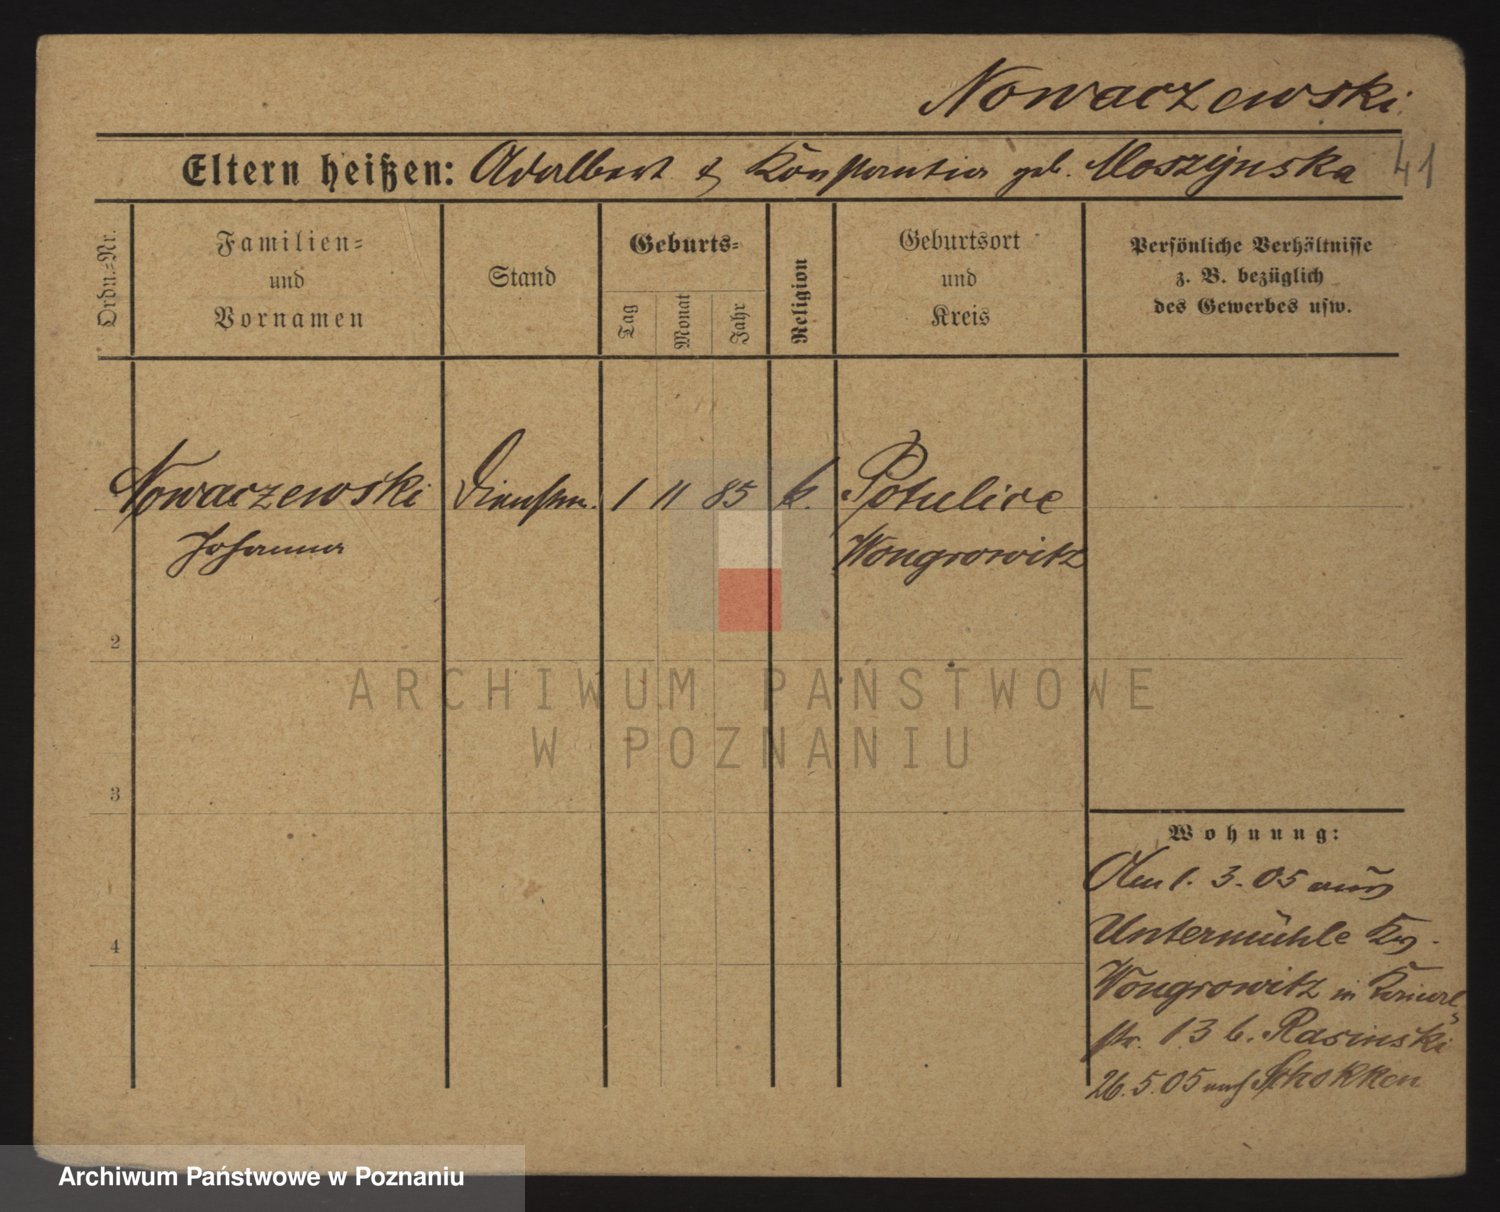 Nowaczewski.
Eltern heißen: Adalbert & Konstantia geb. Moszynska
41
Ordn.-Nr.
Familien-
und
Vornamen
Stand
Geburts-
Tag
Monat
Jahr
Religion
Geburtsort
und
Kreis
Persönliche Verhältnisse
z. B. bezüglich
des Gewerbes usw.
Nowaczewski Dienstm. 1 11 85 k. Potulice
Johanna Wongrowitz
2
3
4
Wohnung:
Am 1. 3. 05 aus
Untermühle Krs.
Wongrowitz in
str. 13 b. Rasinski
26. 5. 05 nach Schokken
ARCHIWUM PAŃSTWOWE
W POZNANIU
Archiwum Państwowe w Poznaniu